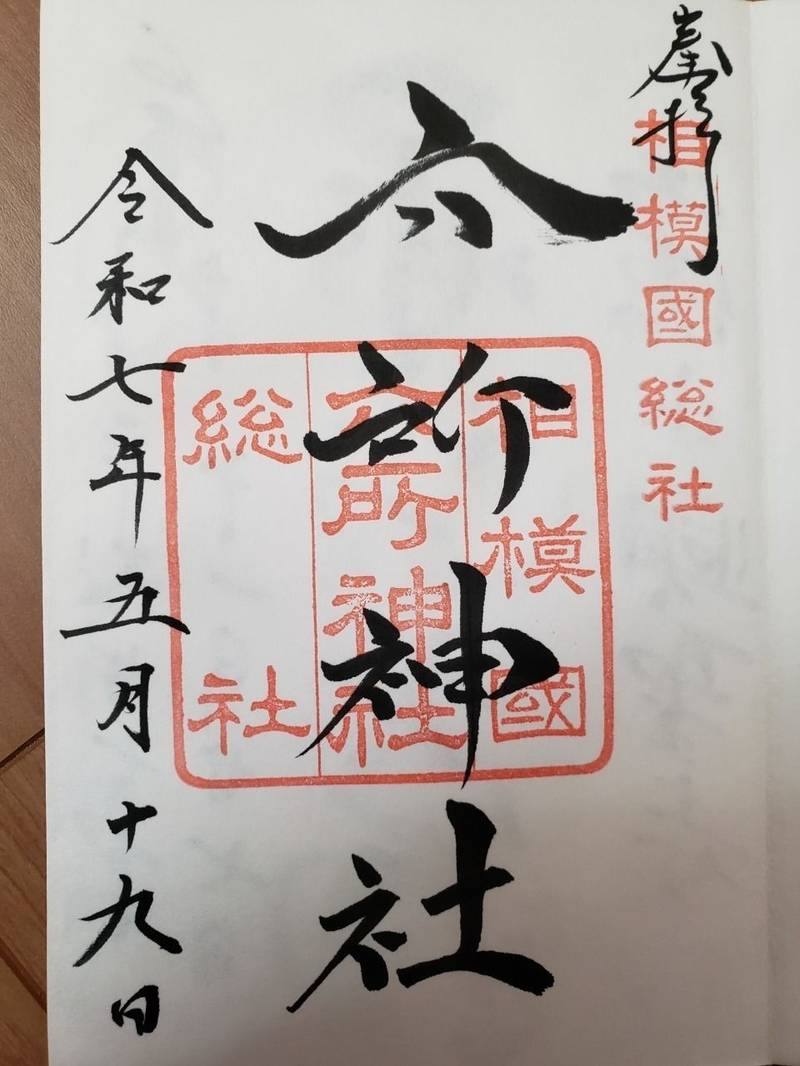 奉拝
相模國総社
六所神社
相模國
六所神社
総社
令和七年五月十九日